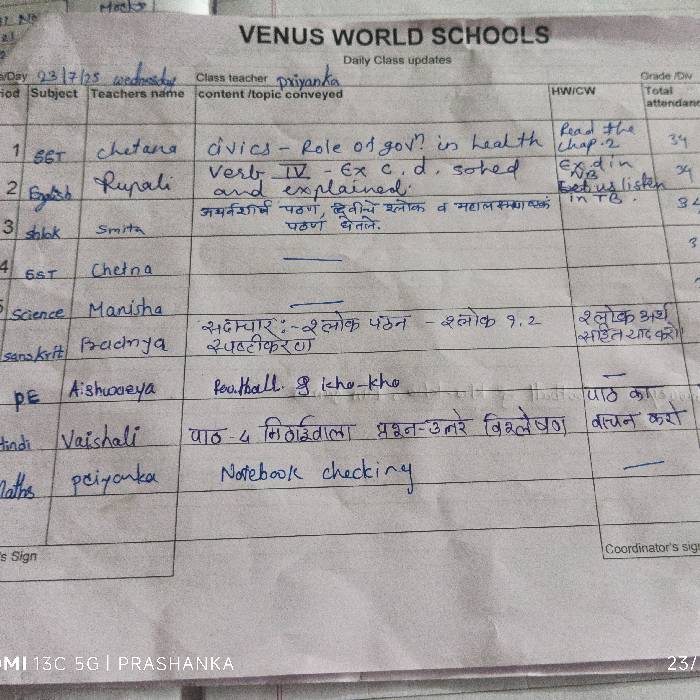 VENUS WORLD SCHOOLS
Daily Class updates
/Day 23/7/25 wednesday Class teacher priyanka Grade /Div
iod Subject Teachers name content /topic conveyed HW/CW Total attendanc
1 SST Chetana civics - Role of govn in health Read the chap. 2 34
2 English Rupali Verb IV - Ex c. d. solved and explained. Ex d in NB Let us listen in TB. 34
3 Shlok Smita अथर्वशीर्ष पठण, देवीचे श्लोक व पठण घेतले. 34
4 SST Chetna — 3
Science Manisha —
sanskrit Pradnya सदाचार :- श्लोक पठन - श्लोक १,२ स्पष्टीकरण श्लोक अर्थ सहित याद करो।
PE Aishwarya Football & kho-kho —
Hindi Vaishali पाठ - 4 मिठाईवाला प्रश्न-उत्तरे विश्लेषण पाठ का वाचन करो
Maths priyanka Notebook checking —
's Sign Coordinator's sign
MI 13C 5G | PRASHANKA 23/